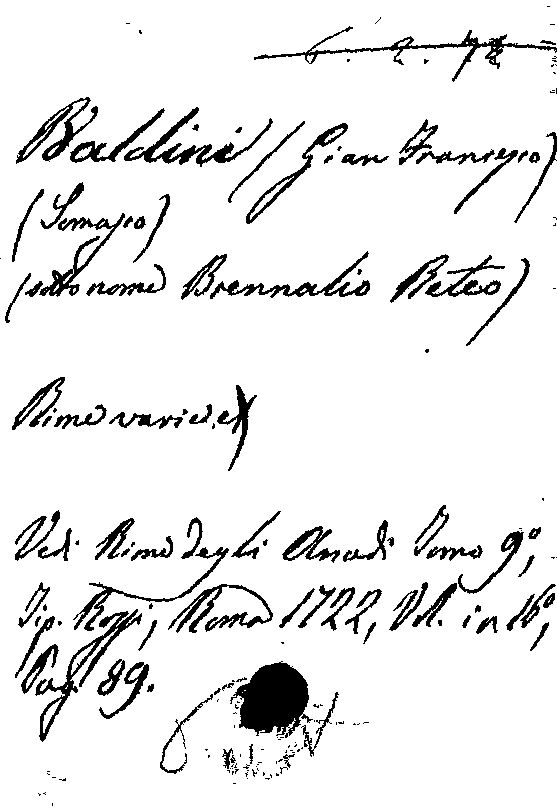 6. 2. 72
Baldini (Gian Francesco)
(Somasco)
(sotto nome Brennalio Reteo)
Rime varie.
Vedi Rime degli Arcadi Tomo 9º,
Tip. Rossi, Roma 1722, Vol. in 16º,
Pag. 89.